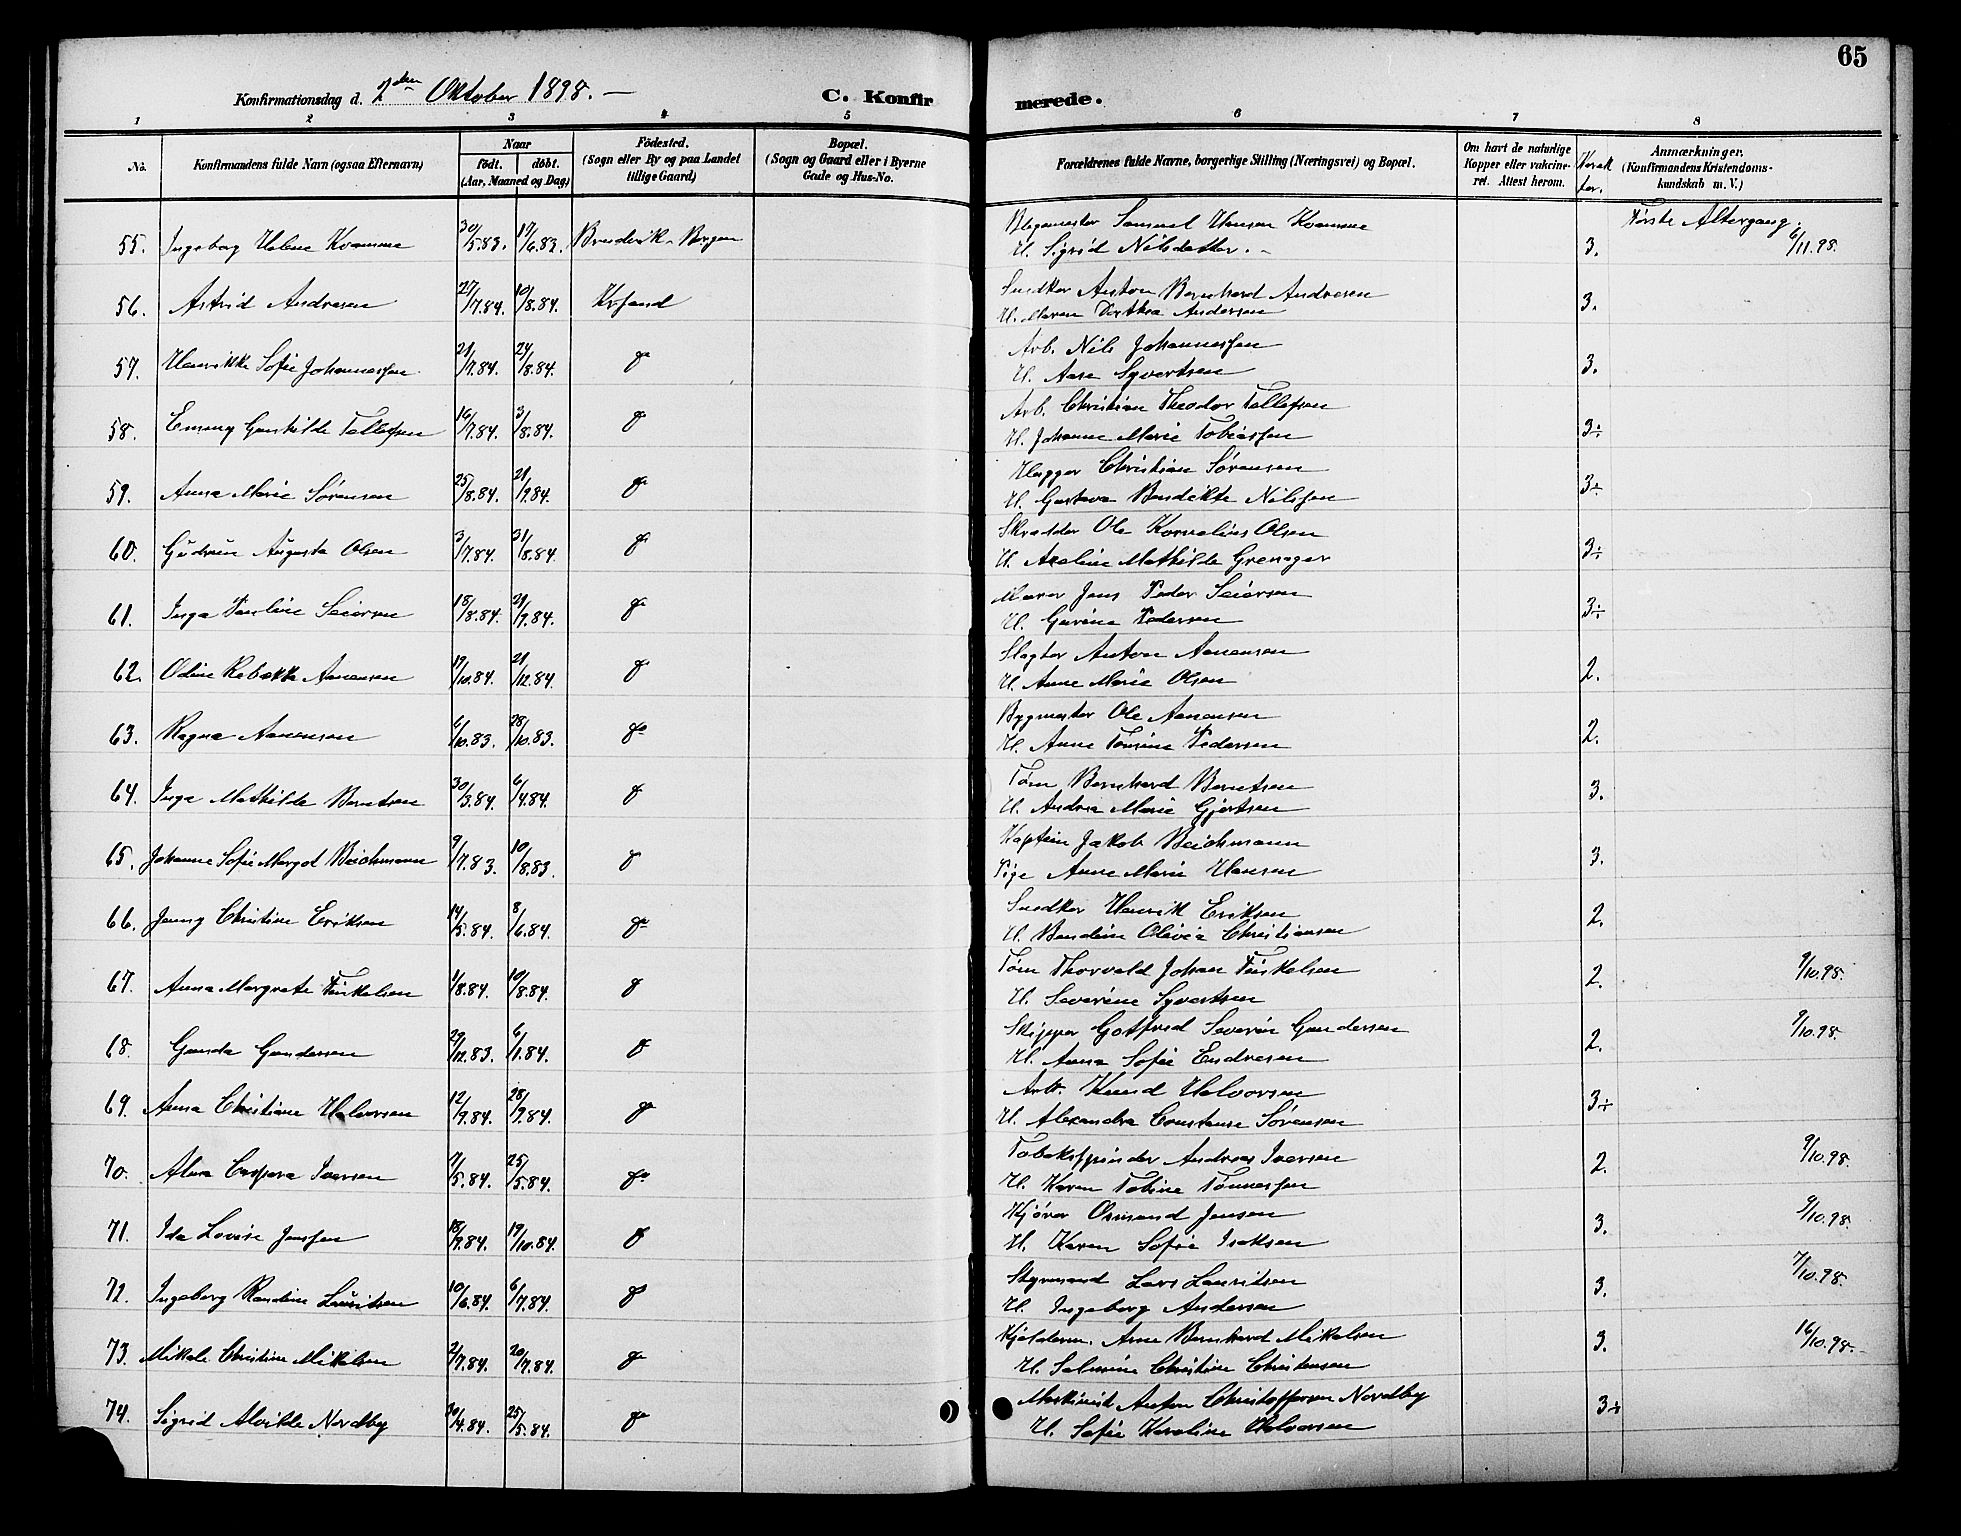 65
Konfirmationsdag d. 2den Oktober 1898. —
C. Konfirmerede.
1 2 3 4 5 6 7 8
No.
Konfirmandens fulde Navn (ogsaa Efternavn)
Naar
födt. döbt.
(Aar, Maaned og Dag)
Födested.
(Sogn eller By og paa Landet
tillige Gaard)
Bopæl.
(Sogn og Gaard eller i Byerne
Gade og Hus-No.
Forældrenes fulde Navne, borgerlige Stilling (Næringsvei) og Bopæl.
Om havt de naturlige
Kopper eller vakcine-
ret. Attest herom.
Karak
ter.
Anmærkninger.
(Konfirmandens Kristendoms-
kundskab m. V.)
Første Altergang.
55. Ingeborg Helene Kvamme 30/5.83. 17/6.83. Samuel Hansen Kvamme
H. Sigrid Nilsdatter. 3. 6/11.98.
56. Astrid Andresen 27/7.84. 10/8.84. Krsand Snedker Anton Bernhard Andresen
H. Maren Dorthea Andersen 3.
57. Henrikke Sofie Johannessen 21/7.84. 24/8.84. do Arb. Nils Johannessen
H. Aase Syvertsen 3.
58. Emmy Gunhilde Tellefsen 16/7.84. 3/8.84. do Arb. Christian Theodor Tellefsen
H. Johanne Marie Tobiassen 3÷
59. Anna Marie Sörensen 25/8.84. 21/9.84. do Christian Sörensen
H. Gustava Bendikte Nilssen 3÷
60. Gudrun Augusta Olsen 3/7.84. 31/8.84. do Skrædder Ole Kornelius Olsen
H. Axeline Mathilde Grenager 3÷
61. Inga Pauline Seiersen 18/8.84. 21/9.84. do Murer Jens Peder Seiersen
H. Gurine Pedersen 3÷
62. Odine Rebekke Aanensen 19/10.84. 21/12.84. do Slagter Anton Aanensen
H. Anne Marie Olsen 2.
63. Ragna Aanensen 6/10.83. 28/10.83. do Bygmester Ole Aanensen
H. Anne Tomine Pedersen 2.
64. Inga Mathilde Berntsen 30/3.84. 6/4.84. do Töm Bernhard Berntsen
H. Andrea Marie Gjertsen 3.
65. Johanne Sofie Margot Beichmann 9/7.83. 10/8.83. do Kaptein Jakob Beichmann
Pige Anne Marie Hansen 3.
66. Jenny Christine Eriksen 14/5.84. 8/6.84. do Snedker Henrik Eriksen
H. Bendine Olivia Christiansen 2.
67. Anna Margrete Terkelsen 1/8.84. 10/8.84. do Töm Thorvald Johan Terkelsen
H. Severine Syvertsen 2. 9/10.98.
68. Gunda Gundersen 29/12.83. 6/1.84. do Skipper Gotfred Severin Gundersen
H. Anna Sofie Endresen 2. 9/10.98.
69. Anna Christiane Halvorsen 12/9.84. 28/9.84. do Arb. Knud Halvorsen
H. Alexandra Constanse Sörensen 3÷
70. Alma Caspara Iversen 7/5.84. 25/5.84. do Tobakspinder Andreas Iversen
H. Karen Tobine Tönnessen 2. 9/10.98.
71. Ida Lovise Jenssen 18/9.84. 19/10.84. do Kjörer Osmund Jensen
H. Karen Sofie Isaksen 3. 9/10.98.
72. Ingeborg Randine Lauritsen 10/6.84. 6/7.84. do Styrmand Lars Lauritsen
H. Ingeborg Andersen 3. 7/10.98.
73. Mikale Christine Mikalsen 2/7.84. 20/7.84. do Arne Bernhard Mikalsen
H. Salmine Christine Christensen 3. 16/10.98.
74. Sigrid Alvilde Nordby 30/4.84. 25/5.84. do Maskinist Anton Christoffersen Nordby
H. Sofie Karoline Halvorsen 3÷